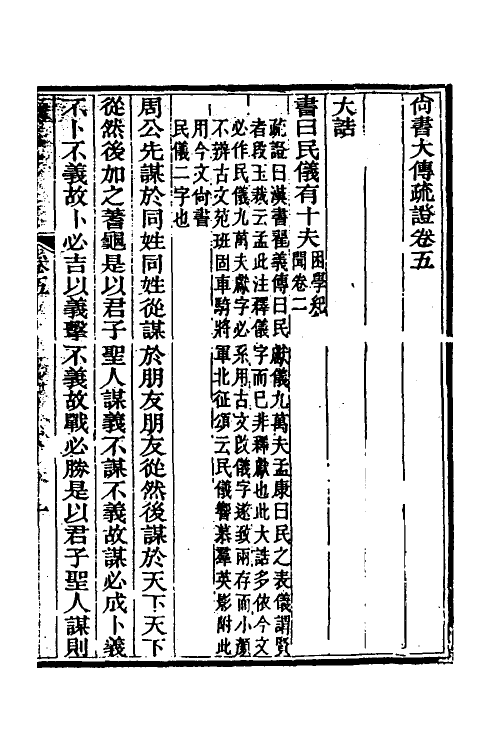 尙書大傳疏證卷五
大誥
書曰民儀有十夫困學紀聞卷二
疏證曰漢書翟義傳曰民獻儀九萬夫孟康曰民之表儀謂賢
者段玉裁云孟此注釋儀字而巳非釋獻也此大誥多依今文
必作民儀九萬夫獻字必系用古文改儀字遂致兩存而小顏
不辨古文苑班固車騎將軍北征頌云民儀響慕羣英影附此
用今文尙書
民儀二字也
周公先謀於同姓同姓從謀於朋友朋友從然後謀於天下天下
從然後加之蓍龜是以君子聖人謀義不謀不義故謀必成卜義
不卜不義故卜必吉以義擊不義故戰必勝是以君子聖人謀則
卷五